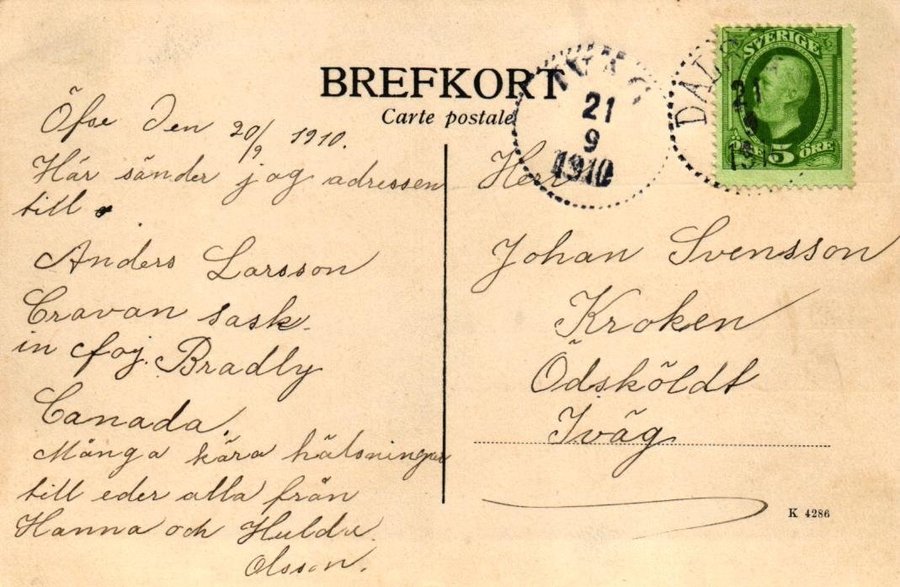 BREFKORT
Carte postale
Öfse den 20/9 1910.
Här sänder jag adressen
till
Anders Larsson
Cravan sask.
in Bradly
Canada.
Många kära hälsningar
till eder alla från
Hanna och Hulda
Olsson.
21
9
1910
DALS
21
SVERIGE
ÖRE 5 ÖRE
Herr
Johan Svensson
Kroken
Ödsköldt
Iväg
K 4286